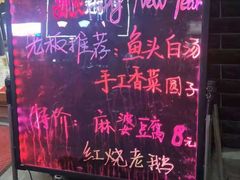 Happy New Year
老板推荐：鱼头白汤
手工香菜圆子
特价：麻婆豆腐8元
红烧老鹅